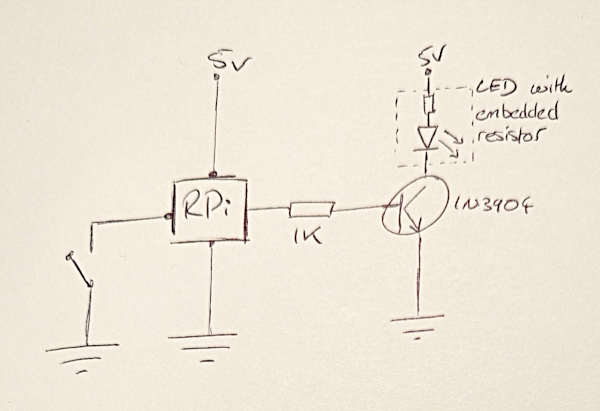 5V
5V
LED with
embedded
resistor
RPi
1K
1N3904